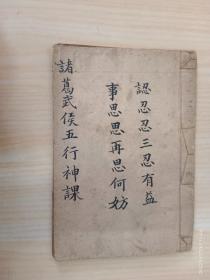 認忍忍三忍有益
事思思再思何妨
諸葛武侯五行神課